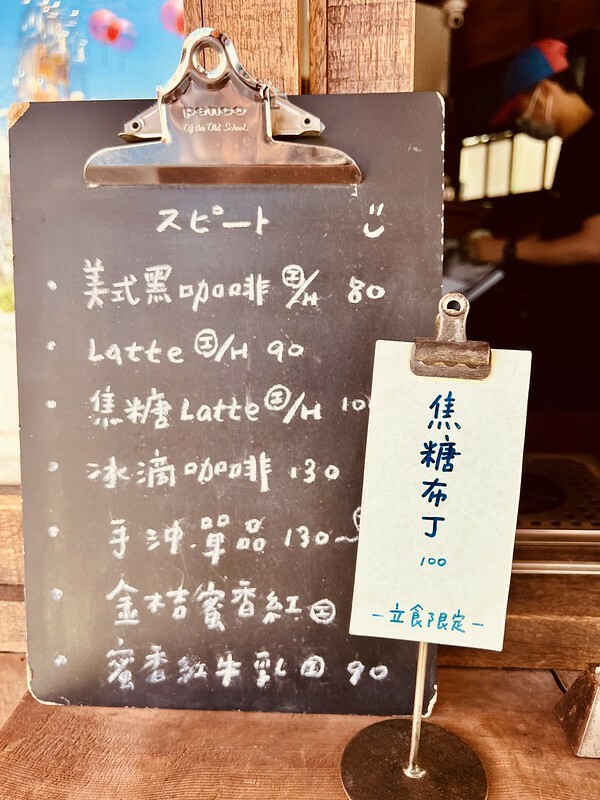 Off the Old School.
スピート
美式黑咖啡 Ⓘ/H 80
Latte Ⓘ/H 90
焦糖 Latte Ⓘ/H
冰滴咖啡 130
手沖.單品 130~
金桔蜜香紅 Ⓘ
蜜香紅牛乳 Ⓘ 90
焦糖布丁
100
-立食限定-